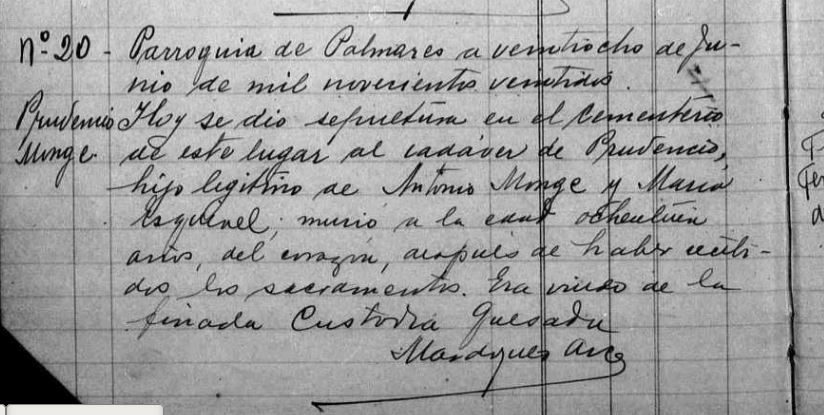 Nº 20 - Parroquia de Palmares a veintiocho de Ju-
nio de mil novecientos veintidos.
Prudencio Hoy se dio sepultura en el cementerio
Monge. de este lugar al cadáver de Prudencio,
hijo legitimo de Antonio Monge y Maria
Esquivel; murió a la edad ochentiún
años, del corazón, después de haber recibi-
dos los sacramentos. Era viudo de la
finada Custodia Quesada